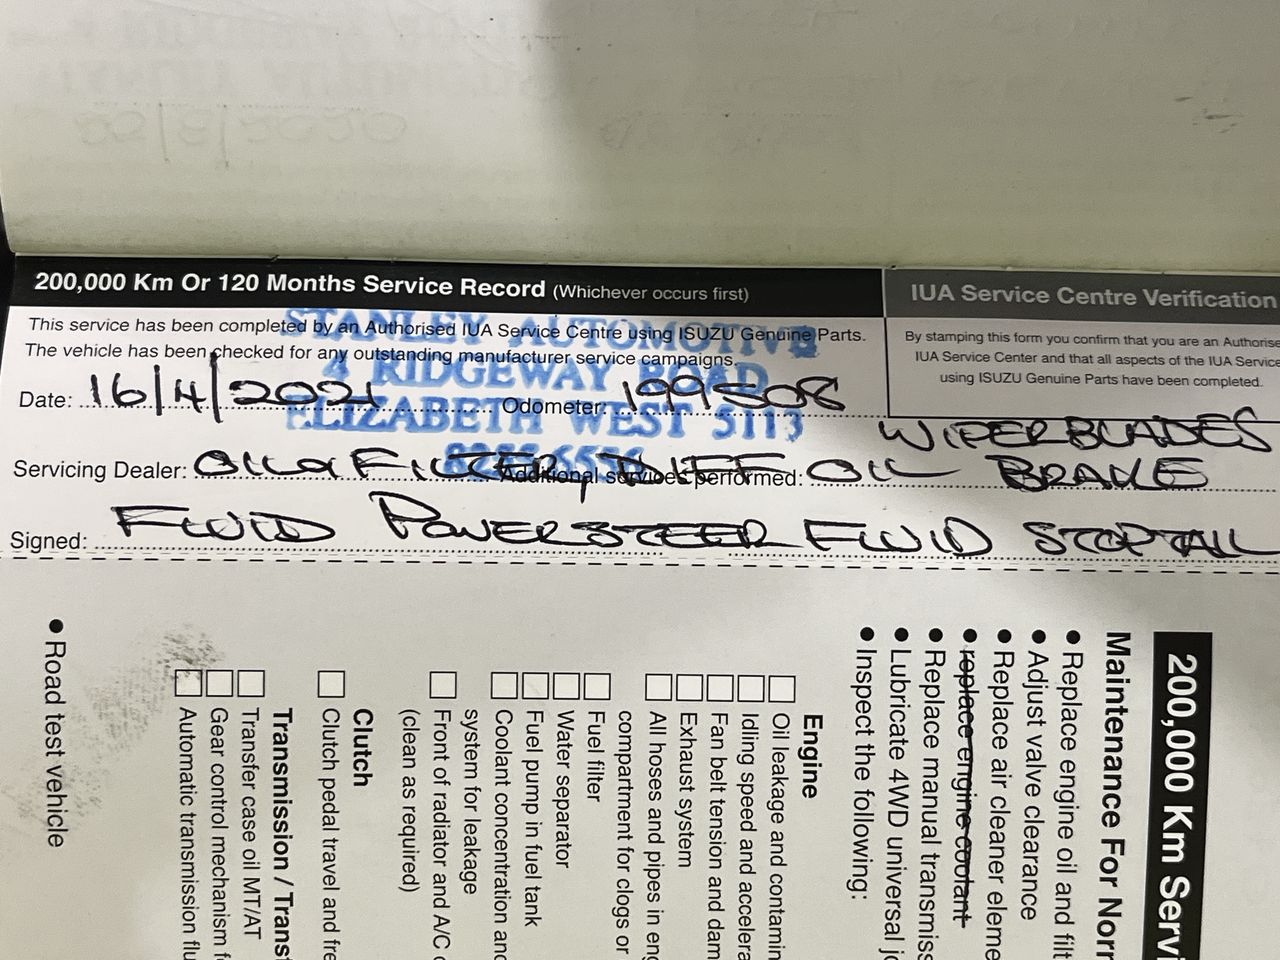 200,000 Km Or 120 Months Service Record (Whichever occurs first)
This service has been completed by an Authorised IUA Service Centre using ISUZU Genuine Parts.
The vehicle has been checked for any outstanding manufacturer service campaigns.
STANLEY AUTOMOTIVE
4 RIDGEWAY ROAD
ELIZABETH WEST 5113
Date: 16/4/2021 Odometer: 199508
IUA Service Centre Verification
By stamping this form you confirm that you are an Authorise
IUA Service Center and that all aspects of the IUA Service
using ISUZU Genuine Parts have been completed.
WIPERBLADES
Servicing Dealer: OIL & FILTER, DIFF OIL BRAKE
Additional services performed:
Signed: FLUID POWERSTEER FLUID STOPTAIL
200,000 Km Servi
Maintenance For Norm
• Replace engine oil and filt
• Adjust valve clearance
• Replace air cleaner eleme
• replace engine coolant
• Replace manual transmiss
• Lubricate 4WD universal jo
• Inspect the following:
Engine
Oil leakage and contamin
Idling speed and accelera
Fan belt tension and dam
Exhaust system
All hoses and pipes in eng
compartment for clogs or
Fuel filter
Water separator
Fuel pump in fuel tank
Coolant concentration and
system for leakage
Front of radiator and A/C c
(clean as required)
Clutch
Clutch pedal travel and fre
Transmission / Transf
Transfer case oil MT/AT
Gear control mechanism f
Automatic transmission flu
• Road test vehicle